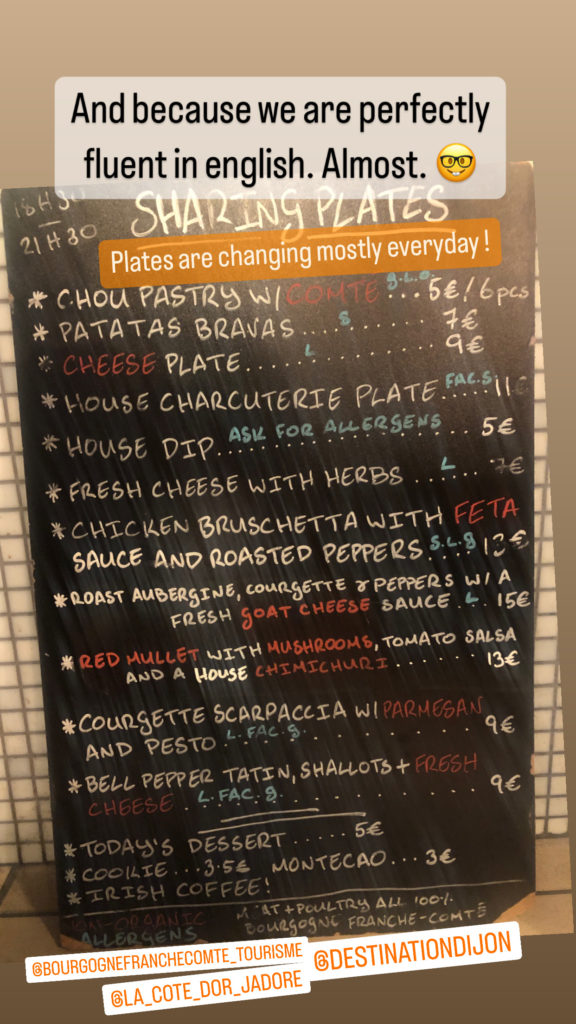 And because we are perfectly
fluent in english. Almost. 🤓
18H30
21H30
SHARING PLATES
Plates are changing mostly everyday !
* CHOU PASTRY W/ COMTE G.L.O. ... 5€/6pcs
* PATATAS BRAVAS .... S ...... 7€
* CHEESE PLATE .... L ........ 9€
* HOUSE CHARCUTERIE PLATE FAC.S ..... 11€
* HOUSE DIP. ASK FOR ALLERGENS ... 5€
* FRESH CHEESE WITH HERBS ... L .. 7€
* CHICKEN BRUSCHETTA WITH FETA
SAUCE AND ROASTED PEPPERS S.L.G 13€
* ROAST AUBERGINE, COURGETTE & PEPPERS W/ A
FRESH GOAT CHEESE SAUCE . L . 15€
* RED MULLET WITH MUSHROOMS, TOMATO SALSA
AND A HOUSE CHIMICHURI ....... 13€
* COURGETTE SCARPACCIA W/ PARMESAN
AND PESTO . L. FAC. G . . . . . 9€
* BELL PEPPER TATIN, SHALLOTS + FRESH
CHEESE . L. FAC. G . . . . . 9€
* TODAY'S DESSERT ..... 5€
* COOKIE ... 3.5€ MONTECAO ... 3€
* IRISH COFFEE!
NON-ORGANIC
ALLERGENS
MEAT + POULTRY ALL 100%
BOURGOGNE FRANCHE-COMTÉ
@BOURGOGNEFRANCHECOMTE_TOURISME
@DESTINATIONDIJON
@LA_COTE_DOR_JADORE